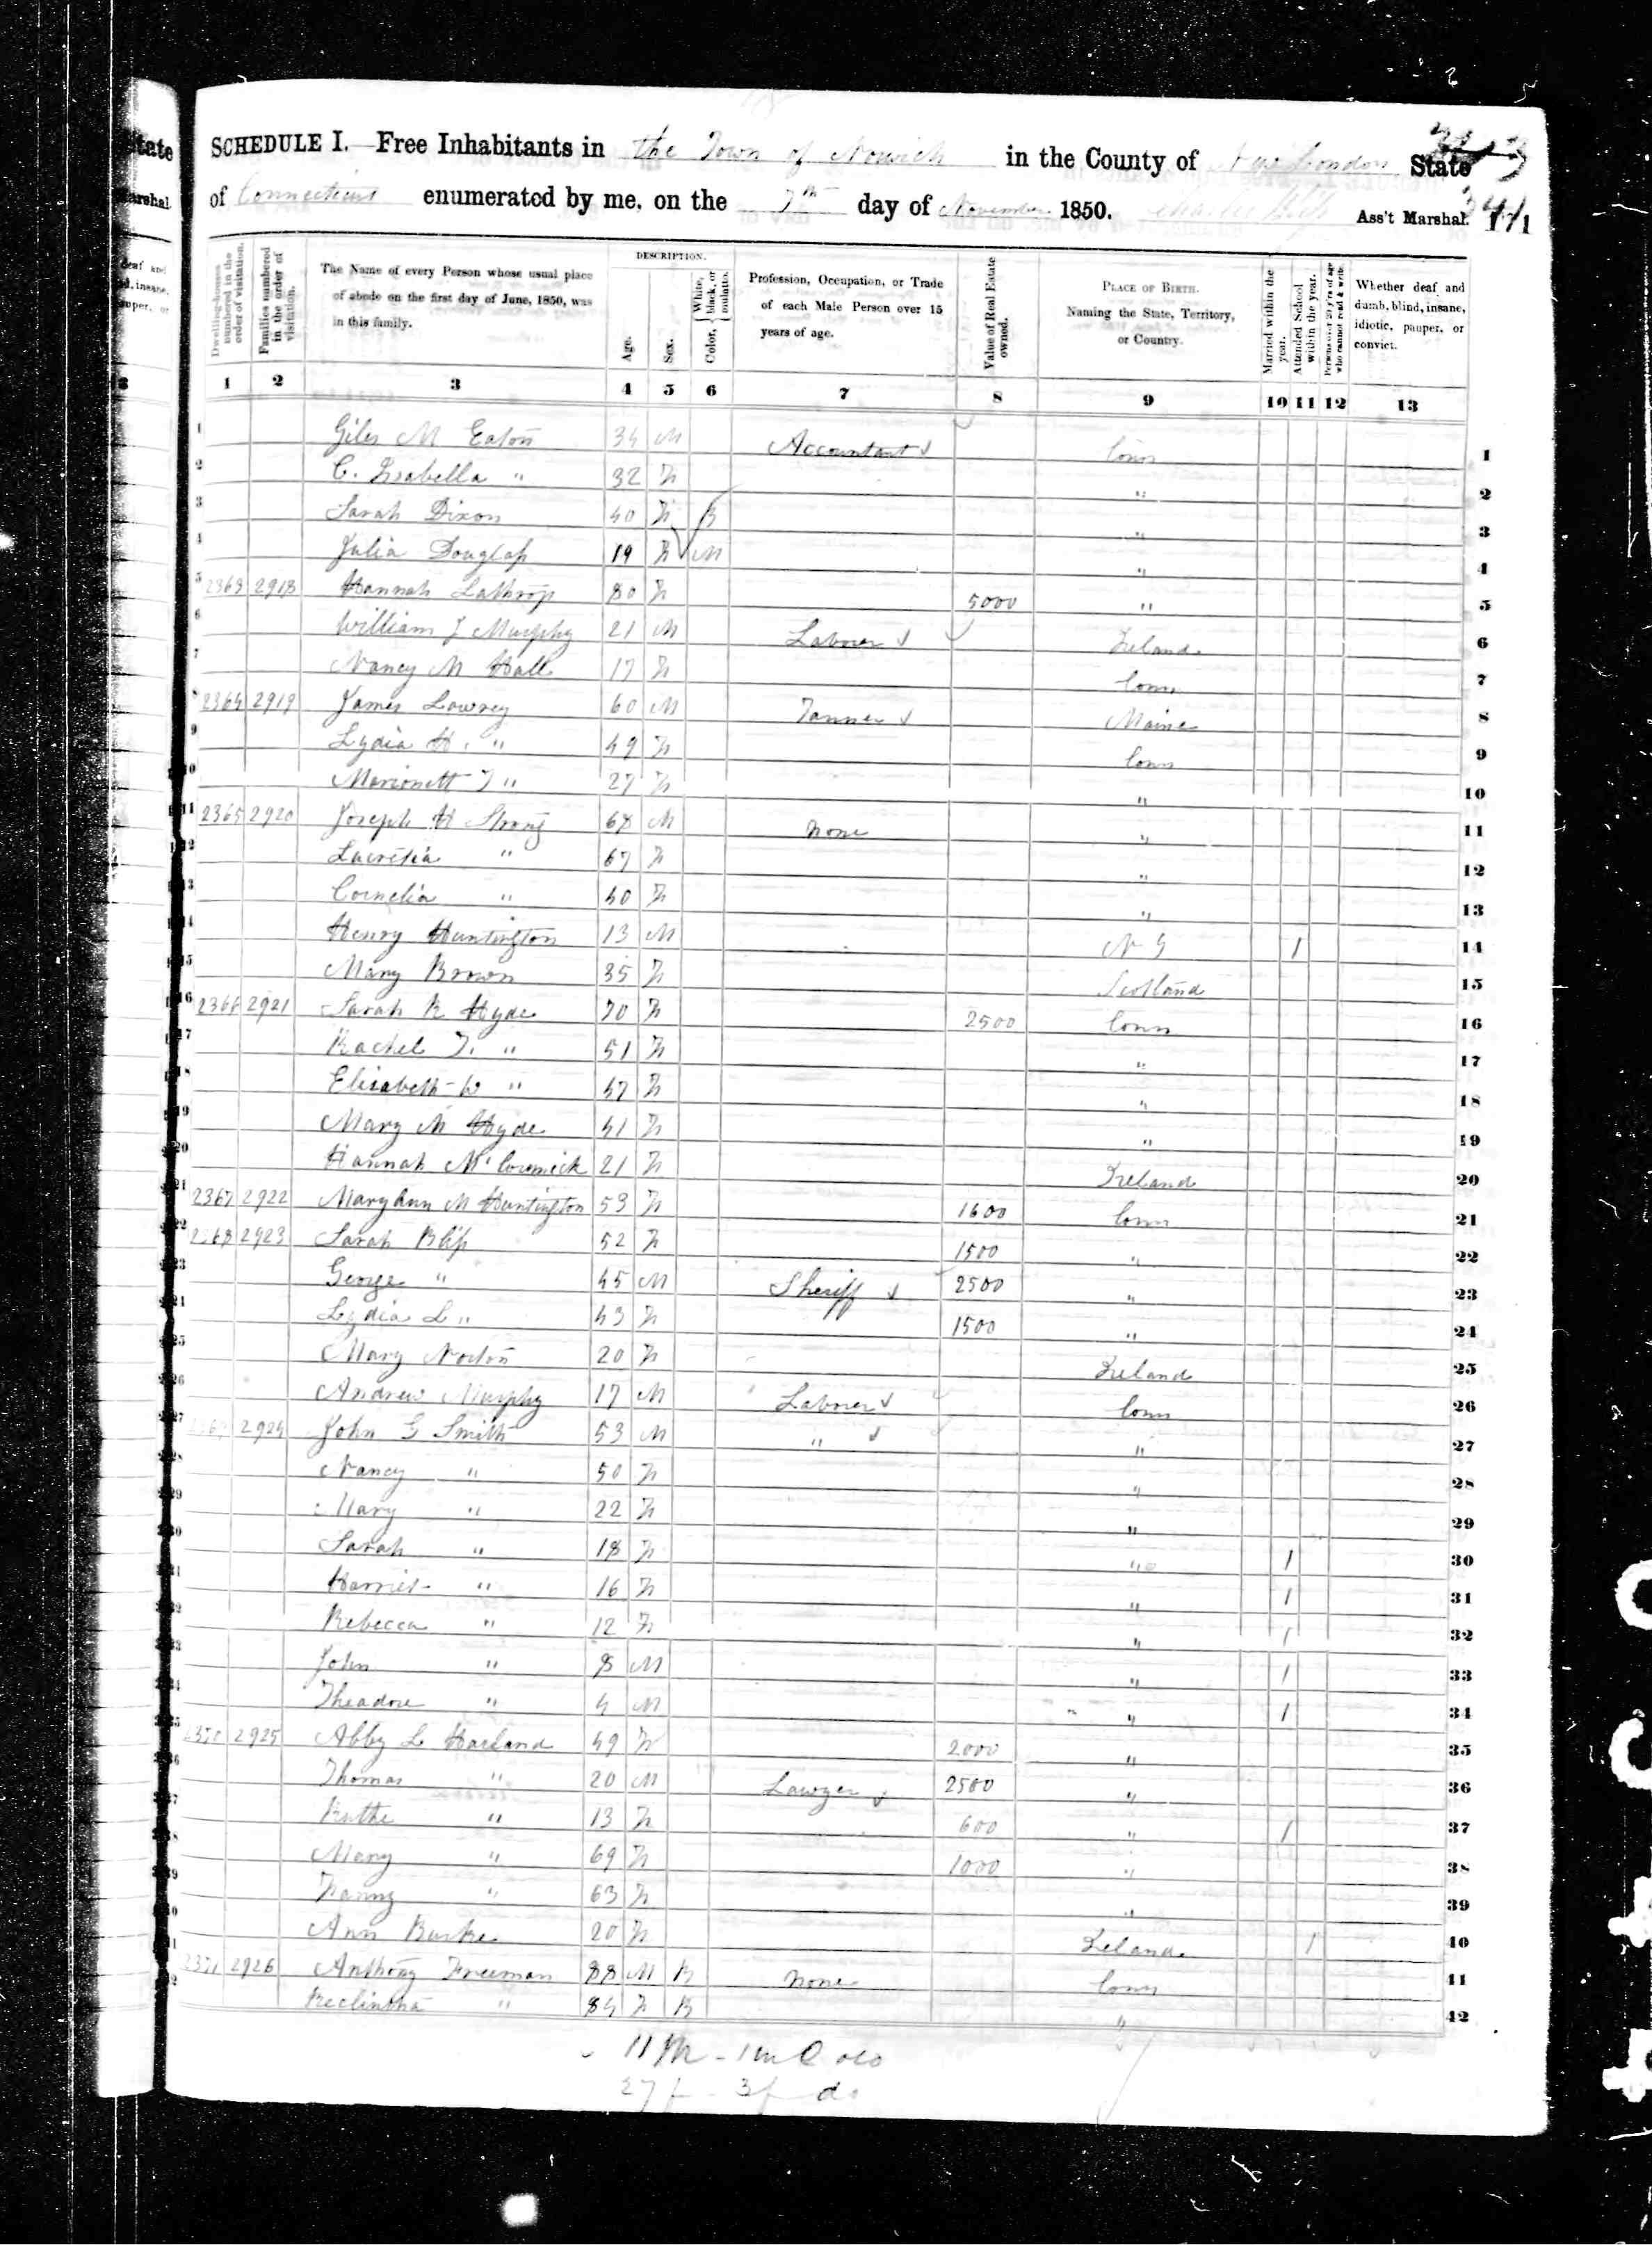 State
Marshal.
deaf and
d, insane,
auper, or
3
SCHEDULE I. Free Inhabitants in the Town of Norwich in the County of New London State
of Connecticut enumerated by me, on the 7th day of November 1850. Ass't Marshal. 341
Dwelling-houses numbered in the order of visitation.
Families numbered in the order of visitation.
The Name of every Person whose usual place of abode on the first day of June, 1850, was in this family.
DESCRIPTION.
Age.
Sex.
Color, { White, black, or mulatto.
Profession, Occupation, or Trade of each Male Person over 15 years of age.
Value of Real Estate owned.
PLACE OF BIRTH. Naming the State, Territory, or Country.
Married within the year.
Attended School within the year.
Persons over 20 y'rs of age who cannot read & write.
Whether deaf and dumb, blind, insane, idiotic, pauper, or convict.
1 2 3 4 5 6 7 8 9 10 11 12 13
1 Giles M Eaton 34 M Accountant Conn 1
2 C. Isabella " 32 F " 2
3 Sarah Dixon 40 F B " 3
4 Julia Douglass 19 F M " 4
5 2363 2918 Hannah Lathrop 80 F 5000 " 5
6 William J Murphy 21 M Laborer Ireland 6
7 Nancy M Hall 17 F Conn 7
8 2364 2919 James Lowrey 60 M Tanner Maine 8
9 Lydia H. " 49 F Conn 9
10 Marionett T " 27 F " 10
11 2365 2920 Joseph H Strong 68 M None " 11
12 Lucretia " 67 F " 12
13 Cornelia " 40 F " 13
14 Henry Huntington 13 M 1 14
15 Mary Brown 35 F Scotland 15
16 2366 2921 Sarah R Hyde 70 F 2500 Conn 16
17 Rachel T. " 51 F " 17
18 Elisabeth W " 47 F " 18
19 Mary M Hyde 41 F " 19
20 Hannah McCormick 21 F Ireland 20
21 2367 2922 Mary Ann M Huntington 53 F 1600 Conn 21
22 2368 2923 Sarah Bliss 52 F 1500 " 22
23 George " 45 M Sheriff 2500 " 23
24 Lydia L " 43 F 1500 " 24
25 Mary Norton 20 F Ireland 25
26 Andrew Murphy 17 M Laborer Conn 26
27 2924 John G Smith 53 M " " 27
28 Nancy " 50 F " 28
29 Mary " 22 F " 29
30 Sarah " 18 F " 1 30
31 Harriet " 16 F " 1 31
32 Rebecca " 12 F " 1 32
33 John " 8 M " 1 33
34 Theadore " 4 M " 1 34
35 2370 2925 Abby L Harland 49 F 2000 " 35
36 Thomas " 20 M Lawyer 2500 " 36
37 Ruthe " 13 F 600 " 1 37
38 Mary " 69 F 1000 " 38
39 Fanny " 63 F " 39
40 Ann Burke 20 F Ireland 1 40
41 2371 2926 Anthony Freeman 88 M B None Conn 41
42 " 84 F B " 42
11 M - 1 m Col
27 f - 3 f do